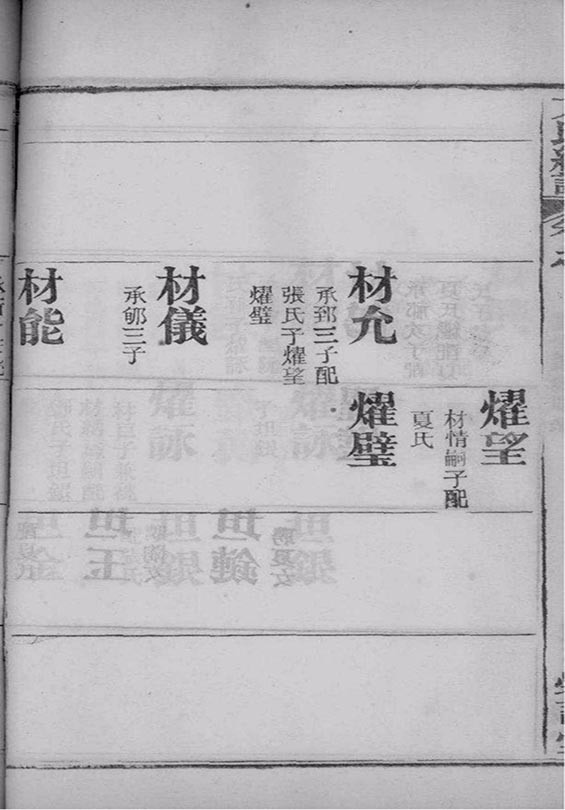 燿望
材情嗣子配
夏氏
材允
承郅三子配
張氏子燿望
燿璧
燿璧
材儀
承郇三子
材能